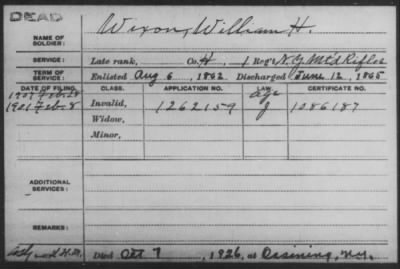 DEAD
NAME OF SOLDIER: Wixon, William H.
SERVICE: Late rank, Co. H, 1 Reg't N.Y. Mt'd Rifles
TERM OF SERVICE: Enlisted Aug 6, 1862 Discharged June 12, 1865
DATE OF FILING. CLASS. APPLICATION NO. LAW. CERTIFICATE NO.
1907 Feb. 28 Age
1901 Feb. 8 Invalid, 1262159 J 1086187
Widow,
Minor,
ADDITIONAL SERVICES:
REMARKS:
Died Oct 7, 1926, at Ossining, N.Y.